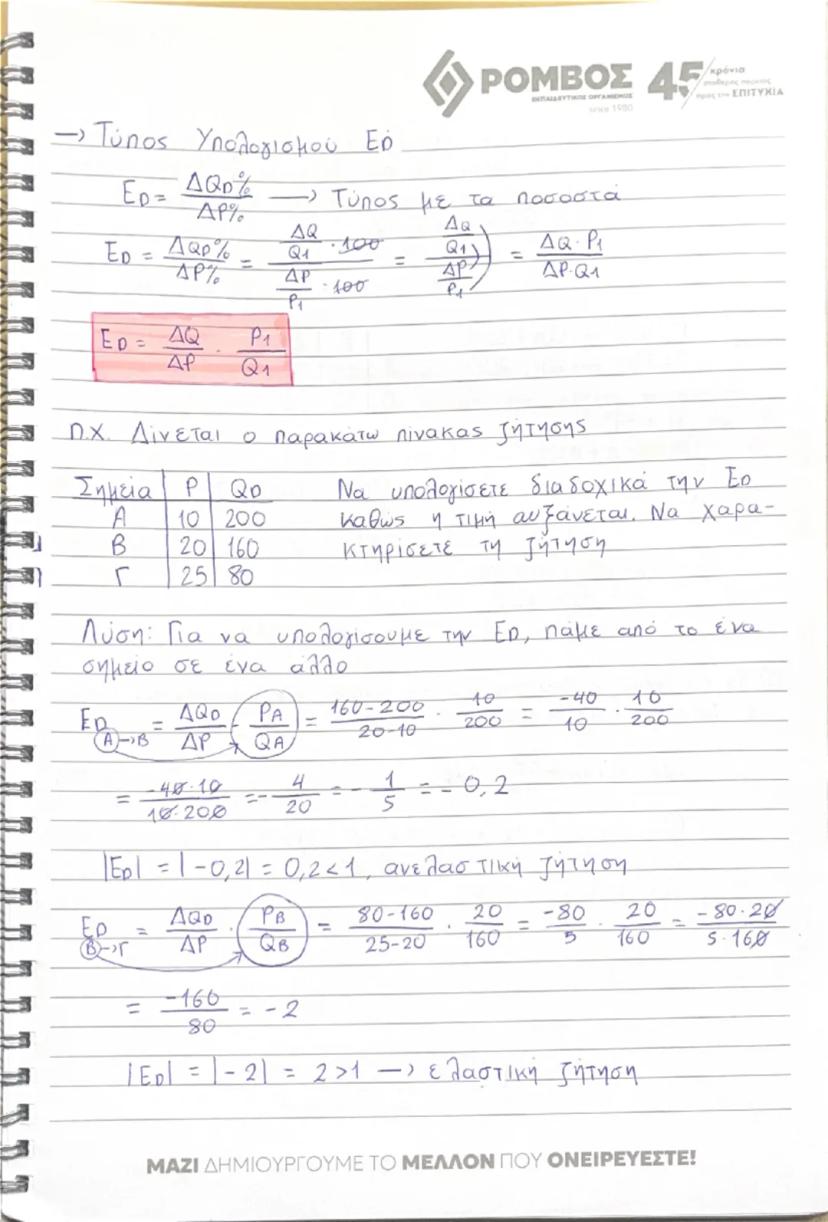 ΡΟΜΒΟΣ 45 κρόνια σταθερής πορείας προς την ΕΠΙΤΥΧΙΑ
ΕΚΠΑΙΔΕΥΤΙΚΟΣ ΟΡΓΑΝΙΣΜΟΣ
since 1980
→ Τύπος Υπολογισμού ED
ED = ΔQD% / ΔP% → Τύπος με τα ποσοστά
ED = ΔQD% / ΔP% = (ΔQ/Q1 · 100) / (ΔP/P1 · 100) = (ΔQ/Q1) / (ΔP/P1) = ΔQ · P1 / ΔP·Q1
ED = ΔQ/ΔP · P1/Q1
π.χ. Δίνεται ο παρακάτω πίνακας ζήτησης
Σημεία P QD Να υπολογίσετε διαδοχικά την ED
Α 10 200 καθώς η τιμή αυξάνεται. Να χαρα-
Β 20 160 κτηρίσετε τη ζήτηση
Γ 25 80
Λύση: Για να υπολογίσουμε την ED, πάμε από το ένα
σημείο σε ένα άλλο
ED Α→Β = ΔQD/ΔP · PA/QA = 160-200/20-10 · 10/200 = -40/10 · 10/200
= -40·10/10·200 = - 4/20 = - 1/5 = - 0,2
|ED| = |-0,2| = 0,2<1, ανελαστική ζήτηση
ED Β→Γ = ΔQD/ΔP · PB/QB = 80-160/25-20 · 20/160 = -80/5 · 20/160 = -80·20/5·160
= -160/80 = -2
|ED| = |-2| = 2>1 → ελαστική ζήτηση
ΜΑΖΙ ΔΗΜΙΟΥΡΓΟΥΜΕ ΤΟ ΜΕΛΛΟΝ ΠΟΥ ΟΝΕΙΡΕΥΕΣΤΕ!